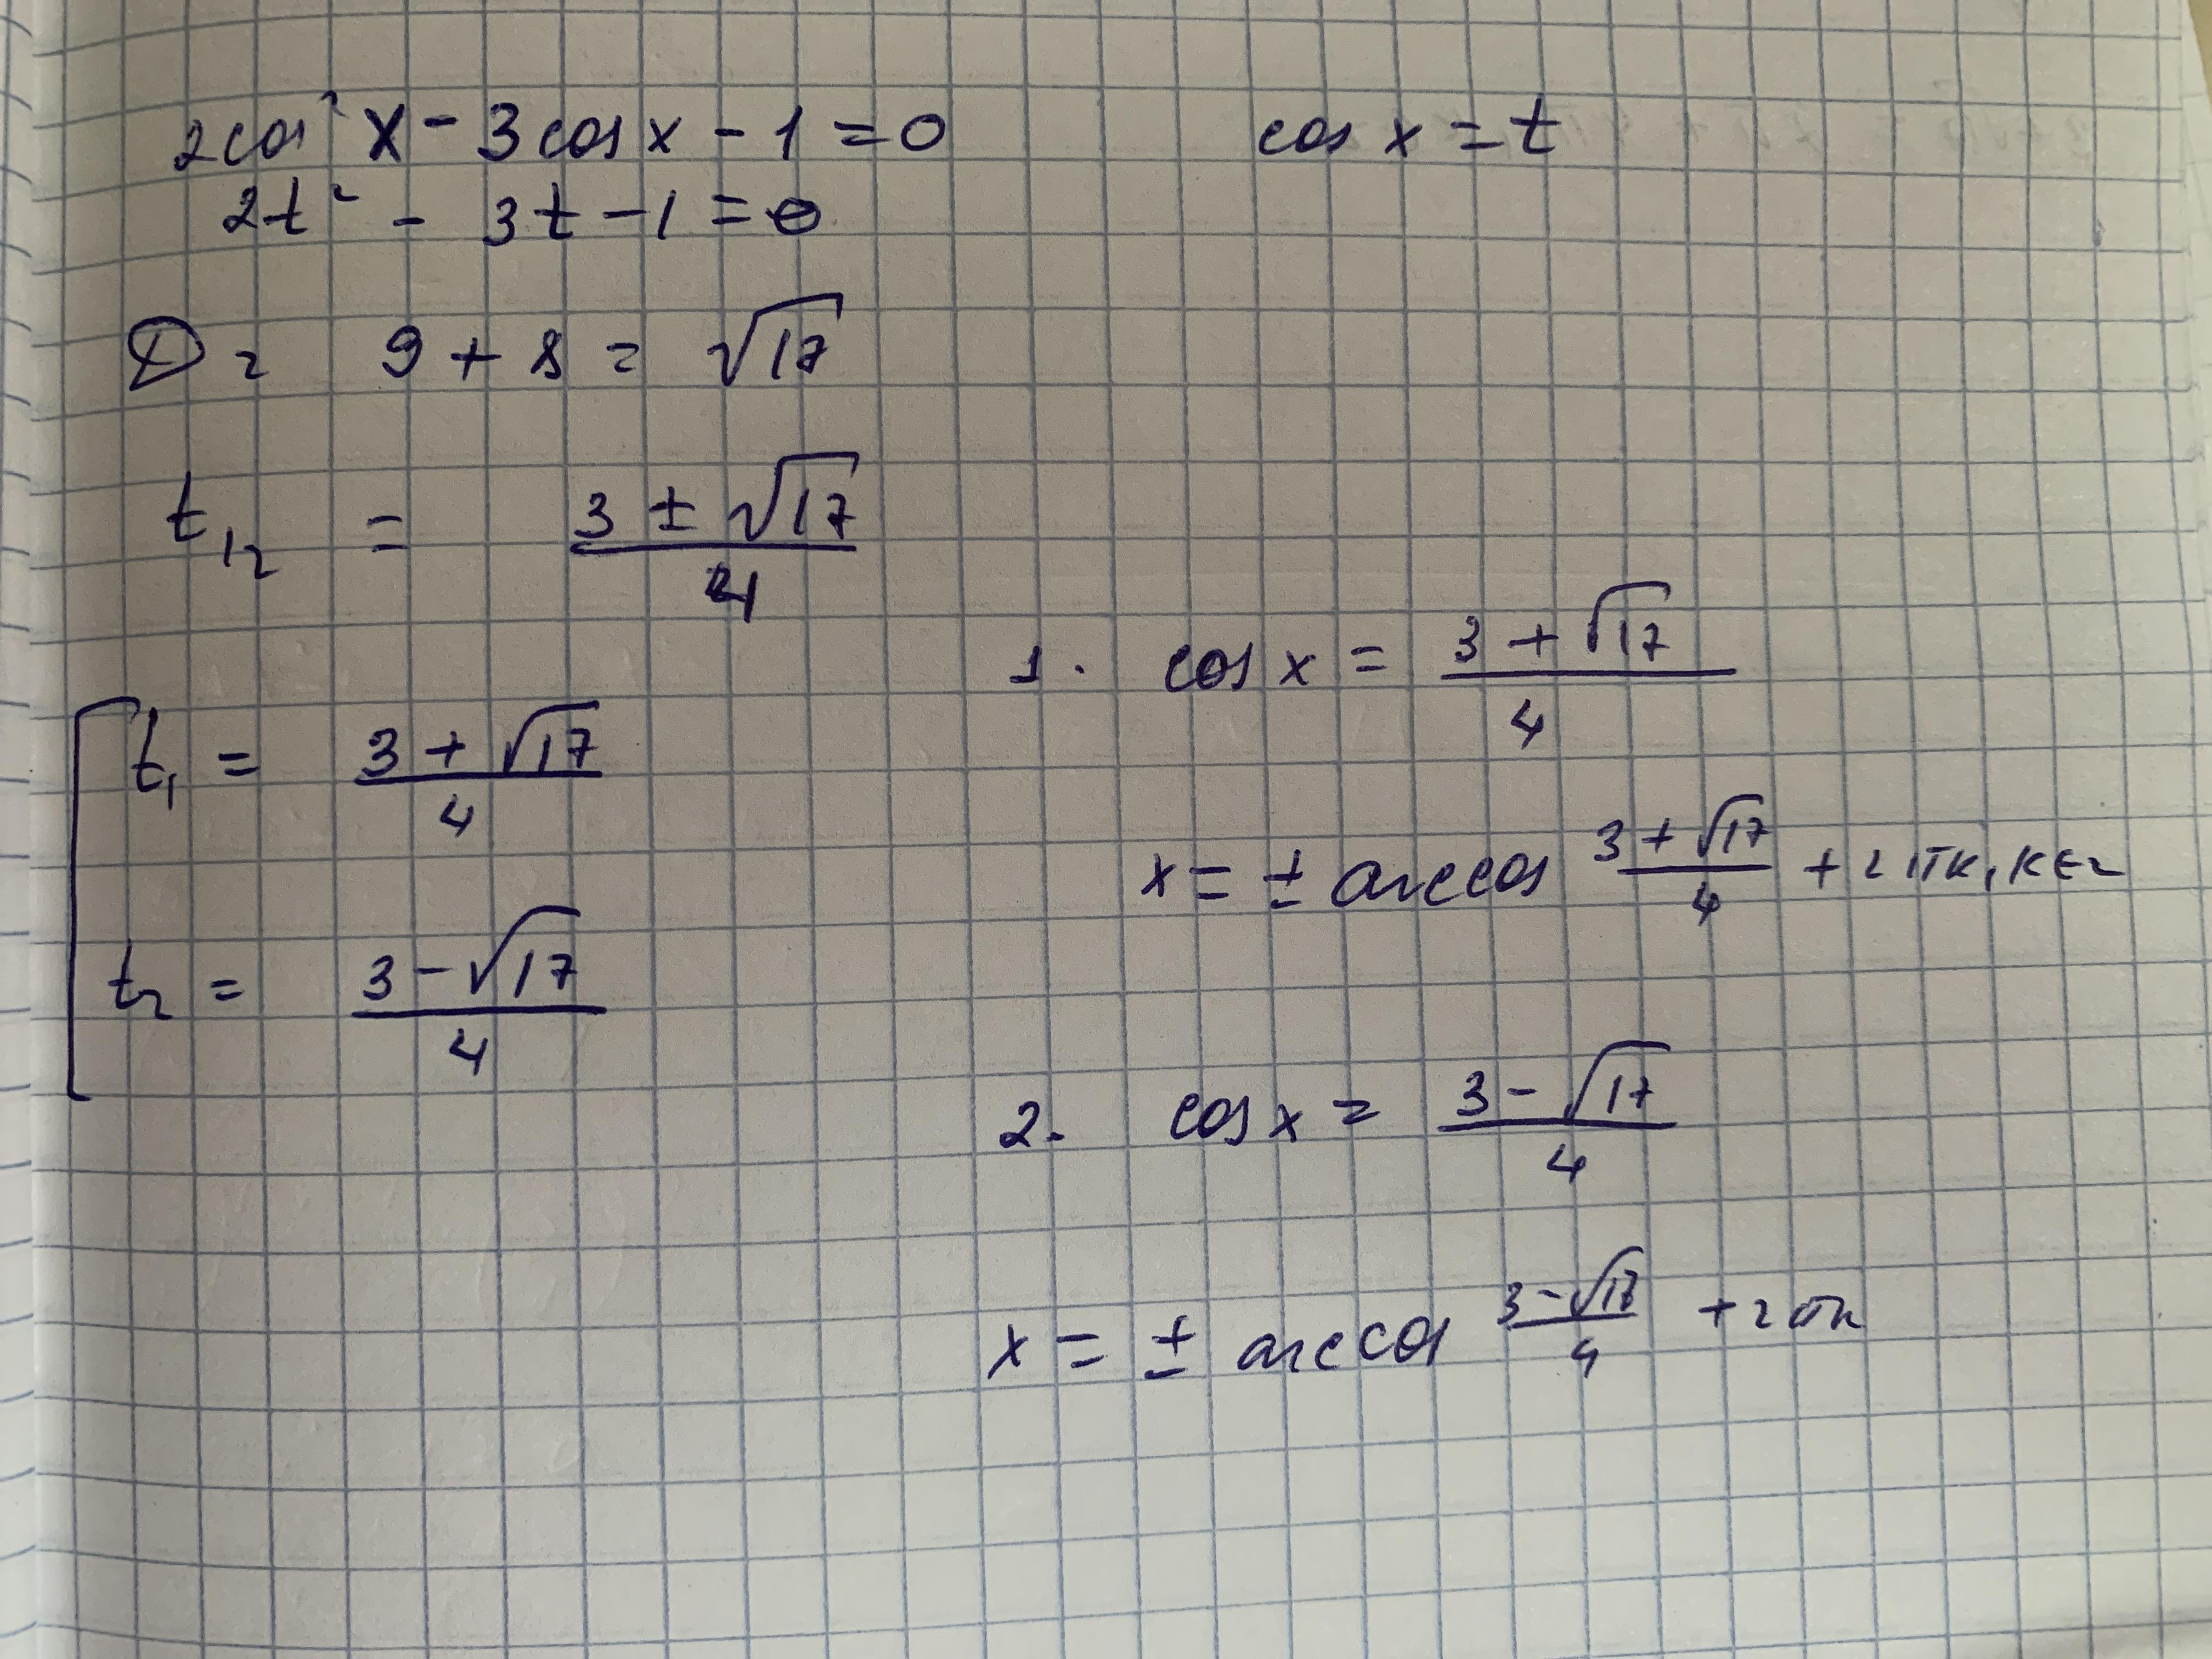 2cos²x - 3cosx - 1 = 0
cos x = t
2t² - 3t - 1 = 0
D = 9 + 8 = √17
t₁₂ = (3 ± √17)/4
t₁ = (3 + √17)/4
t₂ = (3 - √17)/4
1. cos x = (3 + √17)/4
x = ± arccos (3 + √17)/4 + 2πk, k∈z
2. cos x = (3 - √17)/4
x = ± arccos (3 - √17)/4 + 2πk